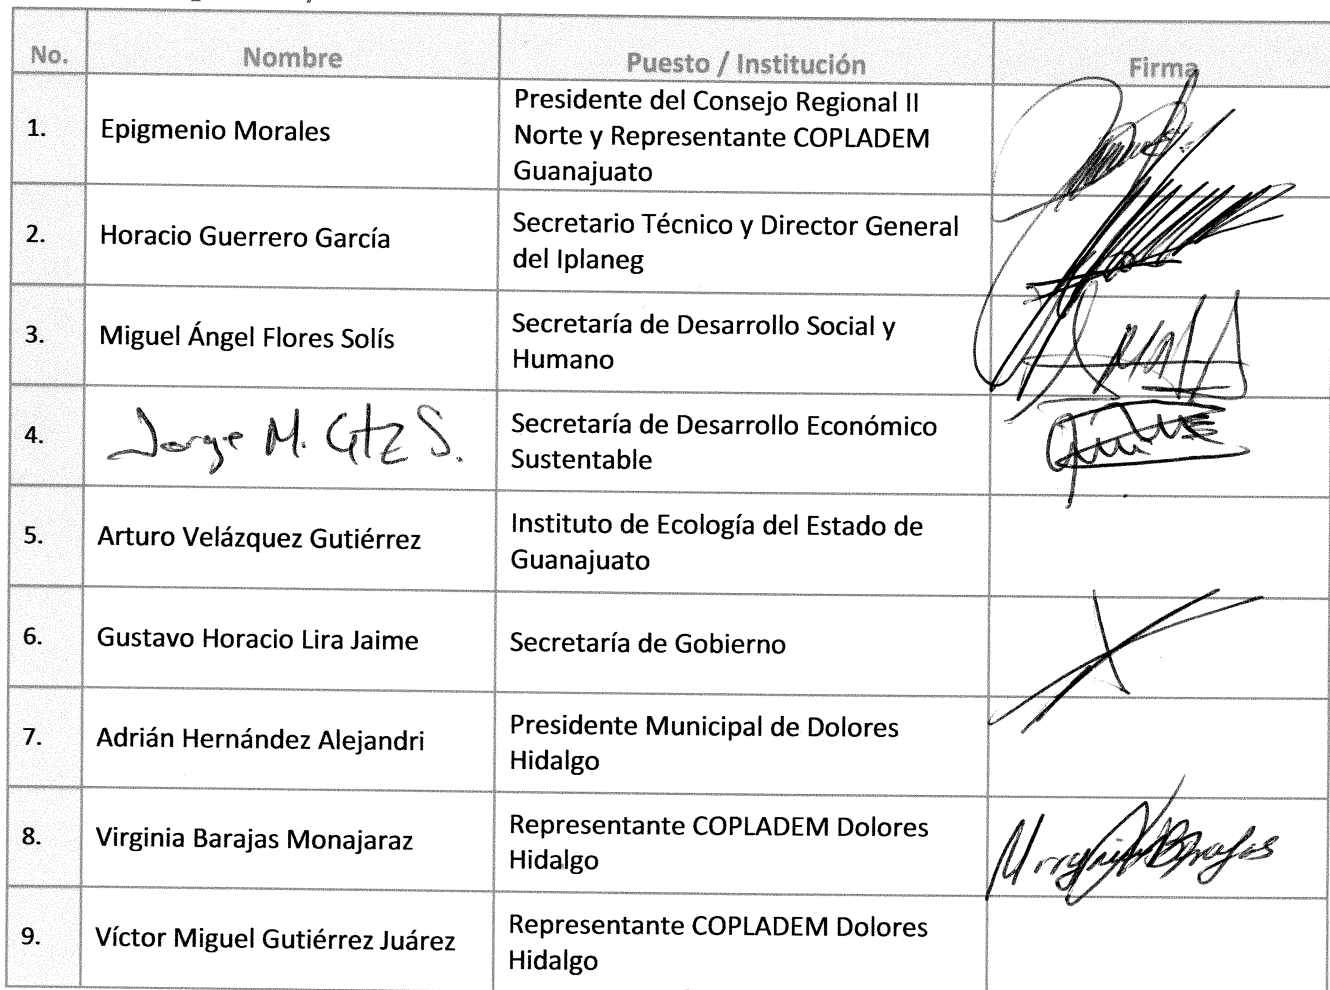 No. Nombre Puesto / Institución Firma
1. Epigmenio Morales Presidente del Consejo Regional II
Norte y Representante COPLADEM
Guanajuato
2. Horacio Guerrero García Secretario Técnico y Director General
del Iplaneg
3. Miguel Ángel Flores Solís Secretaría de Desarrollo Social y
Humano
4. Jorge M. Gtz S. Secretaría de Desarrollo Económico
Sustentable
5. Arturo Velázquez Gutiérrez Instituto de Ecología del Estado de
Guanajuato
6. Gustavo Horacio Lira Jaime Secretaría de Gobierno
7. Adrián Hernández Alejandri Presidente Municipal de Dolores
Hidalgo
8. Virginia Barajas Monajaraz Representante COPLADEM Dolores
Hidalgo
9. Víctor Miguel Gutiérrez Juárez Representante COPLADEM Dolores
Hidalgo